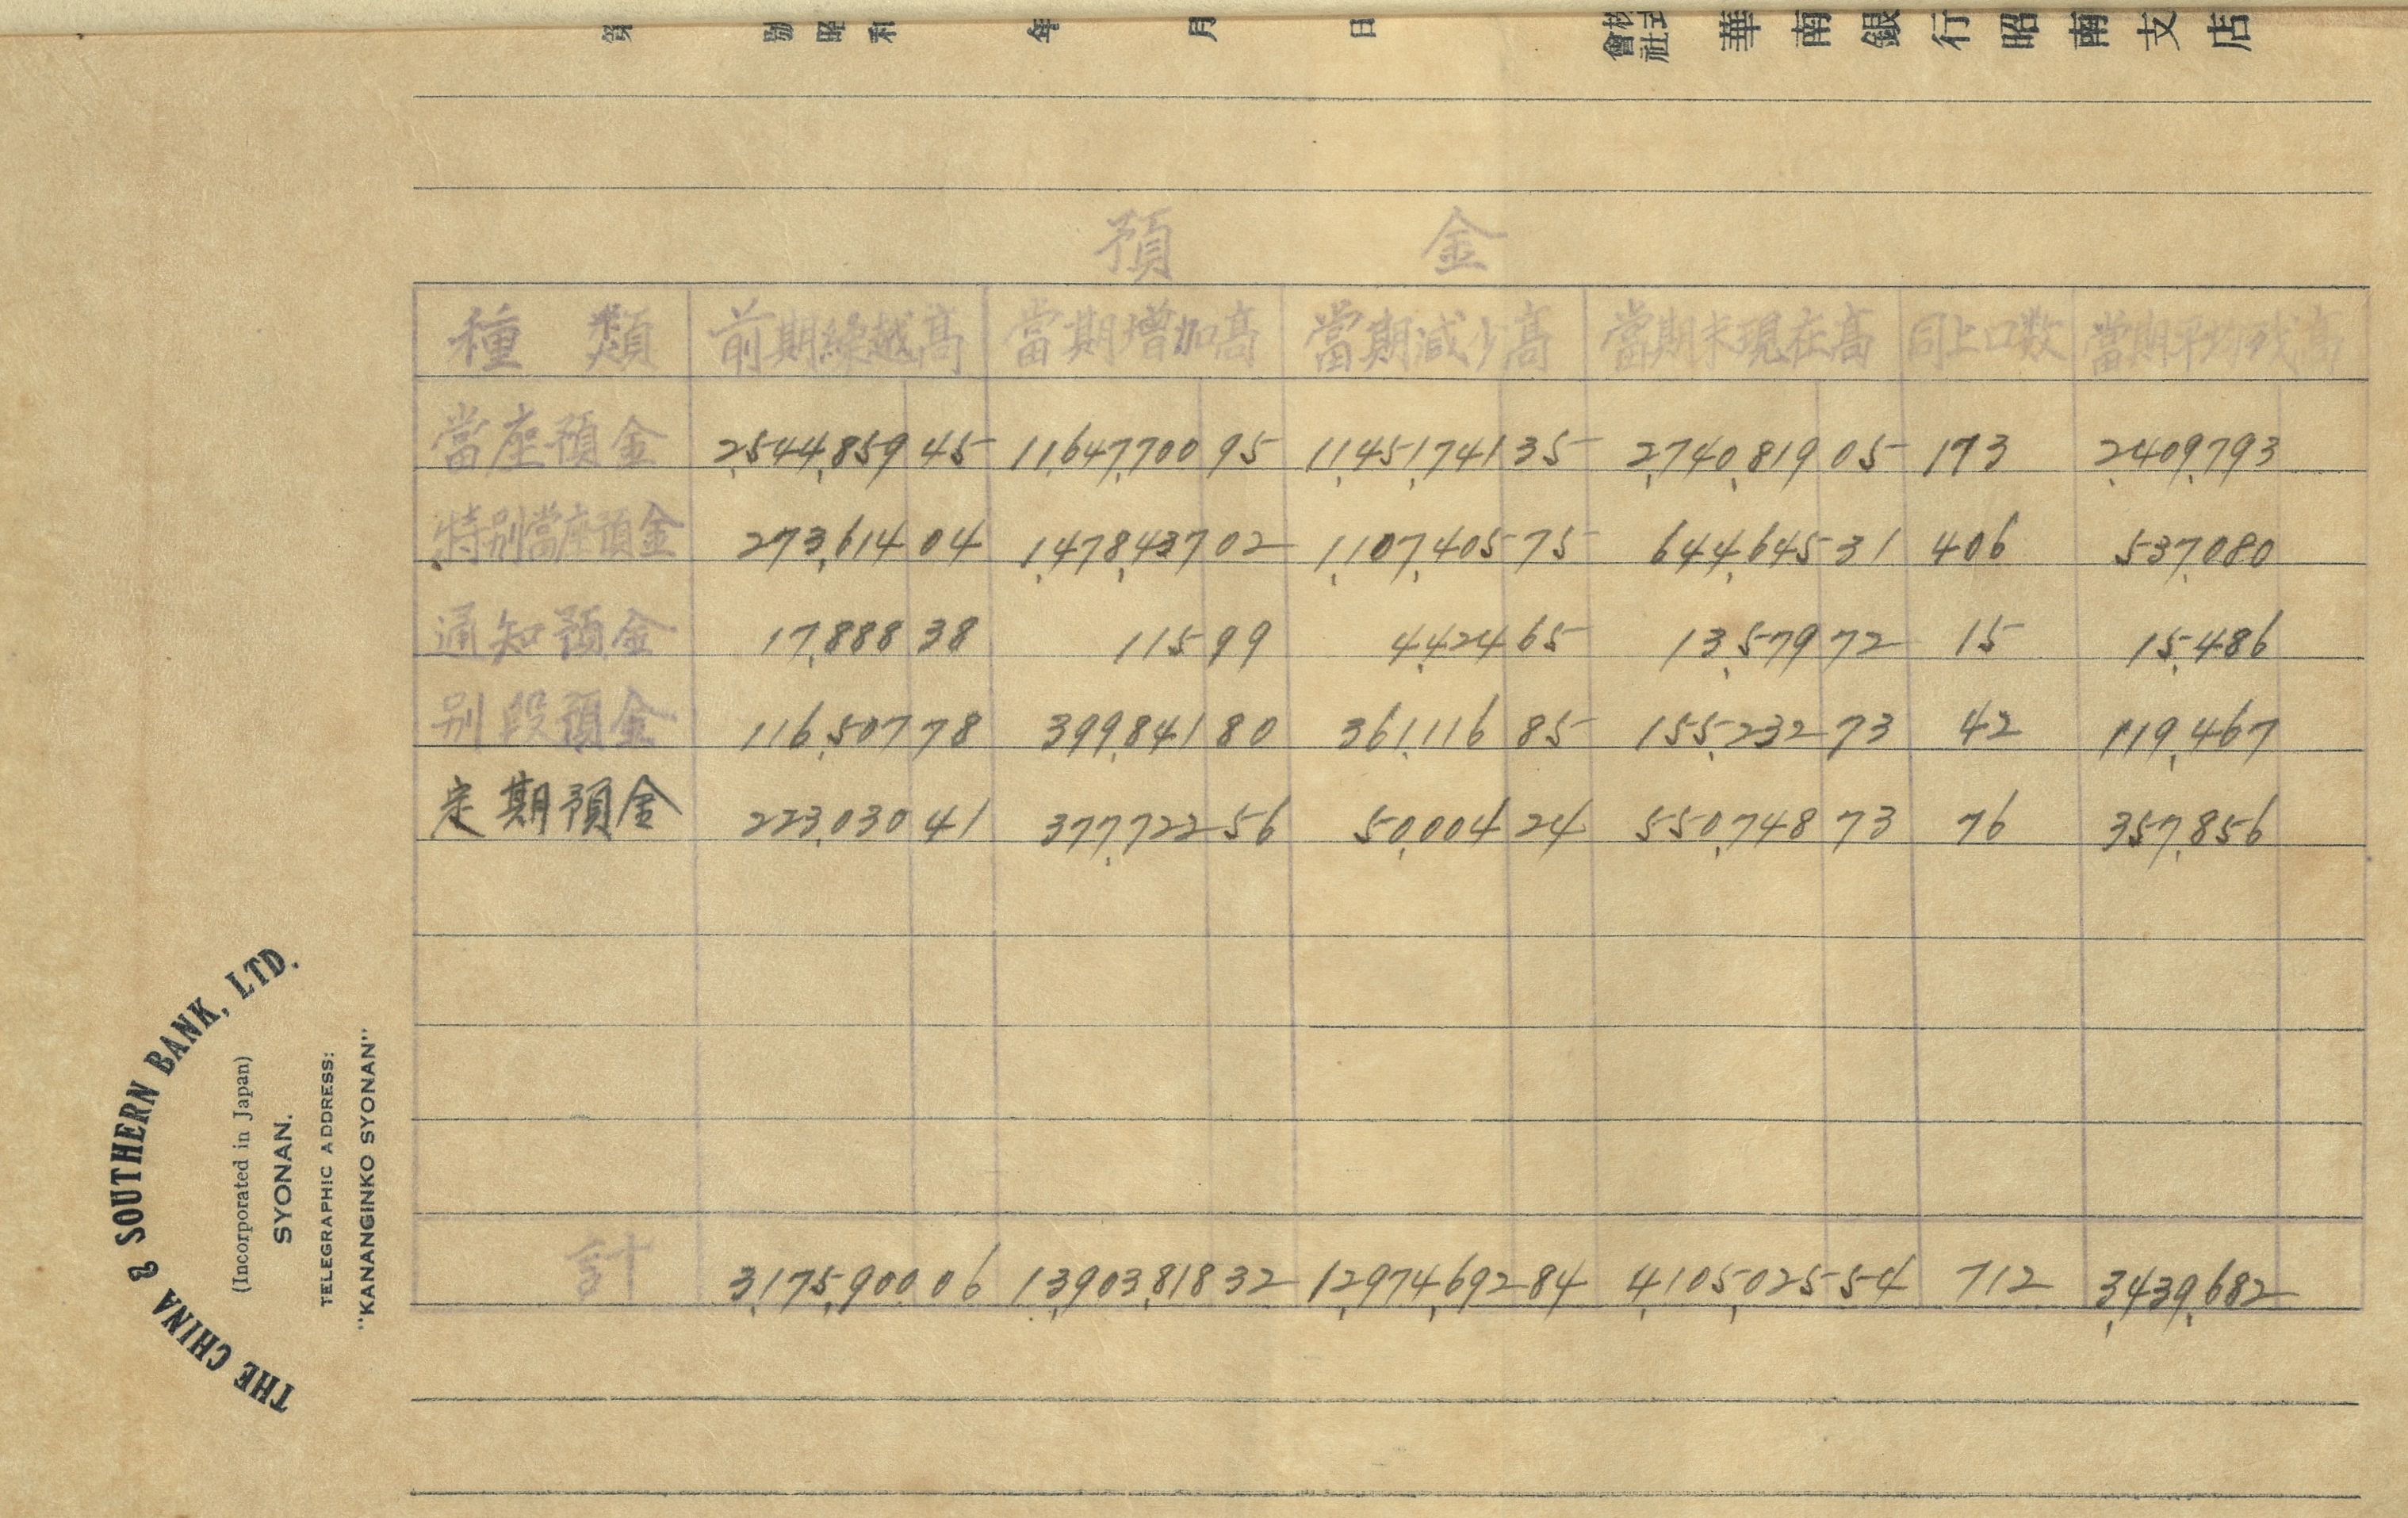 第 號 昭和 年 月 日 株式會社 華南銀行昭南支店
預 金
種 類 前期繰越高 當期増加高 當期減少高 當期末現在高 同上口数 當期平均残高
當座預金 2,544,859 45 11,647,700 95 11,451,741 35 2,740,819 05 173 2,409,793
特別當座預金 273,614 04 1,478,437 02 1,107,405 75 644,645 31 406 537,080
通知預金 17,888 38 115 99 4,424 65 13,579 72 15 15,486
別段預金 116,507 78 399,841 80 361,116 85 155,232 73 42 119,467
定期預金 223,030 41 377,722 56 50,004 24 550,748 73 76 357,856
計 3,175,900 06 13,903,818 32 12,974,692 84 4,105,025 54 712 3,439,682
THE CHINA & SOUTHERN BANK, LTD.
(Incorporated in Japan)
SYONAN.
TELEGRAPHIC ADDRESS:
"KANANGINKO SYONAN"